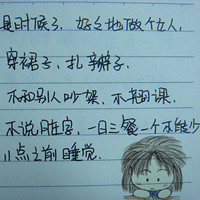 是时候了，好好地做个女人，
穿裙子，扎辫子，
不和别人吵架，不翘课，
不说脏字，一日三餐一个不能少
11点之前睡觉.